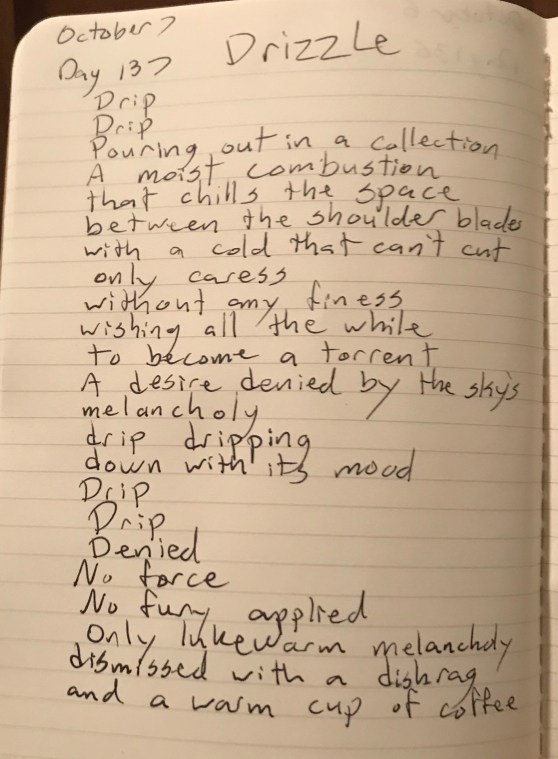 October 7
Drizzle
Day 137
Drip
Drip
Pouring out in a collection
A moist combustion
that chills the space
between the shoulder blades
with a cold that can't cut
only caress
without any finess
wishing all the while
to become a torrent
A desire denied by the sky's
melancholy
drip dripping
down with its mood
Drip
Drip
Denied
No force
No fury applied
Only lukewarm melancholy
dismissed with a dishrag
and a warm cup of coffee